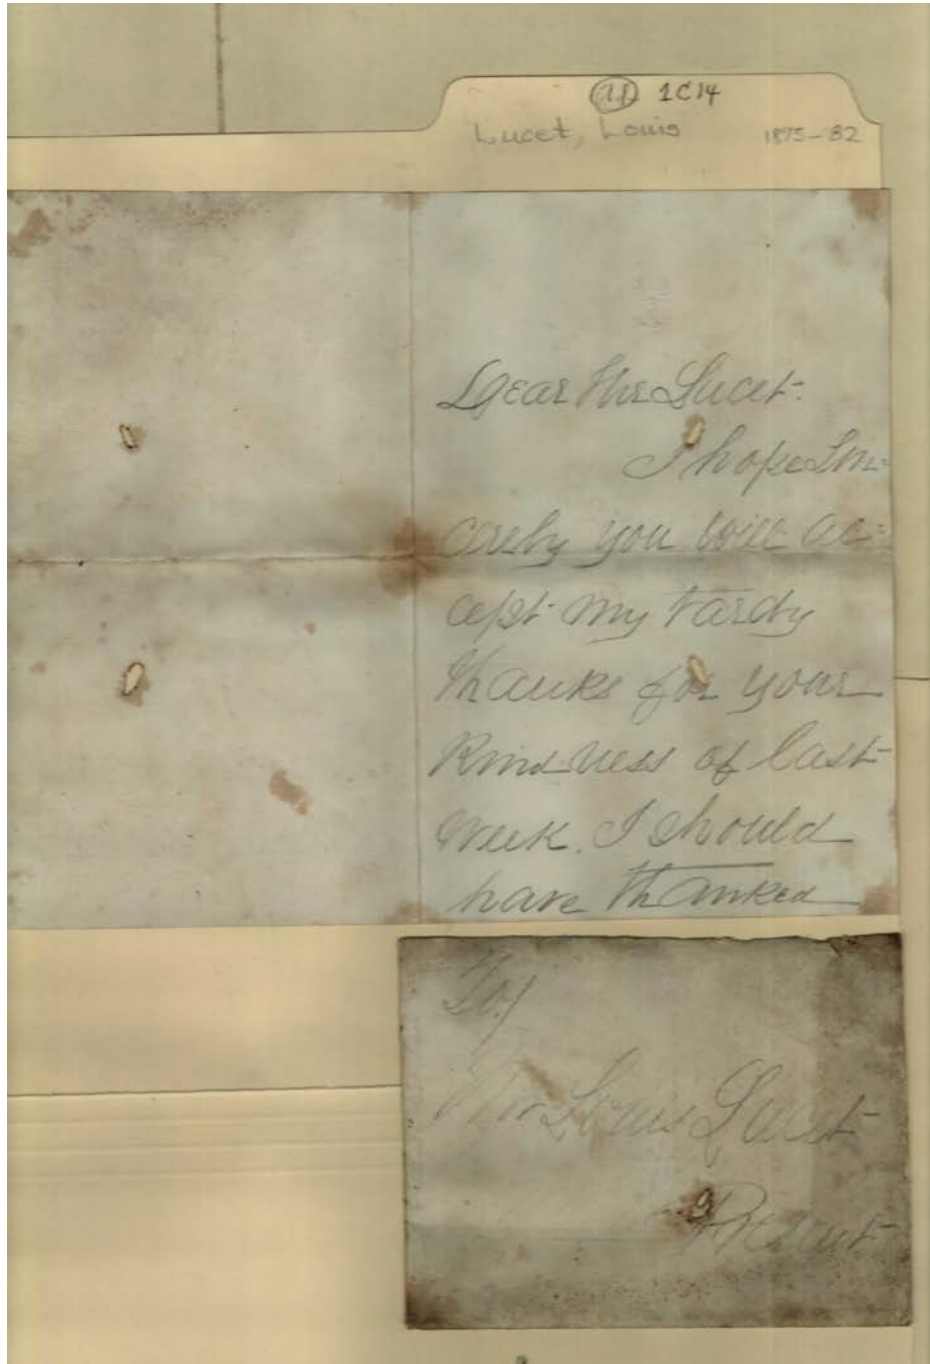 1C14
Lucet, Louis 1875-82
Dear Mr Lucet-
I hope Sin=
cerely you will ac=
cept my tardy
thanks for your
Kindness of last
week. I should
have thanked
To/
Mr Louis Lucet
Present